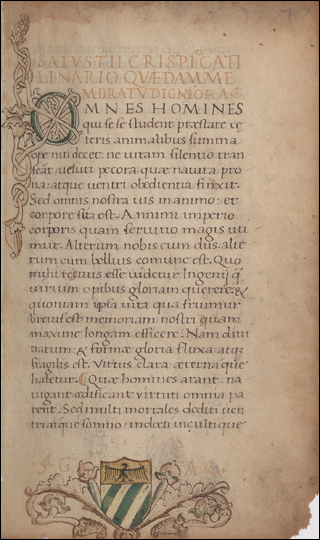 SALUSTII CRISPI CATI
LINARIO QUÆDAM ME
MORATU DIGNIORA
OMNES HOMINES
qui se se student præstare ce
teris animalibus summa
ope niti decet: ne vitam silentio tran
seat: veluti pecora quæ natura pro
na: atque ventri obedientia finxit.
Sed omnis nostra vis in animo: et
corpore sita est. Animi imperio
corporis quam servitio magis uti
mur. Alterum nobis cum dus: alte
rum cum belluis comune est. Quo
mihi rectius esse videtur Ingenij q̃
virium opibus gloriam querere: &
quoniam ipsa vita qua fruimur
brevis est memoriam nostri quam
maxime longam efficere: Nam divi
tiarum & formæ gloria fluxa atq;
fragilis est. Virtus clara æterna que
habetur. Quæ homines arant na
vigant ædificant virtuti omnia pa
rent. Sed multi mortales dediti ven
tri atque somno: indocti incultique
S G A S